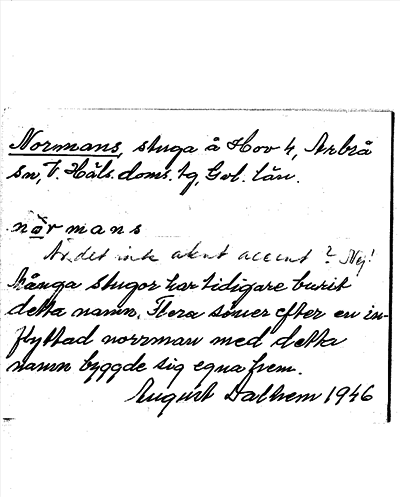 Normans, stuga å Hov 4, Arbrå
sn, V. Häls. doms. tg, Gvl. län.
nòrmans
Är det inte akut accent? Nej!
Många stugor har tidigare burit
detta namn. Flera söner efter en in-
flyttad norrman med detta
namn byggde sig egna hem.
August Dalhem 1946